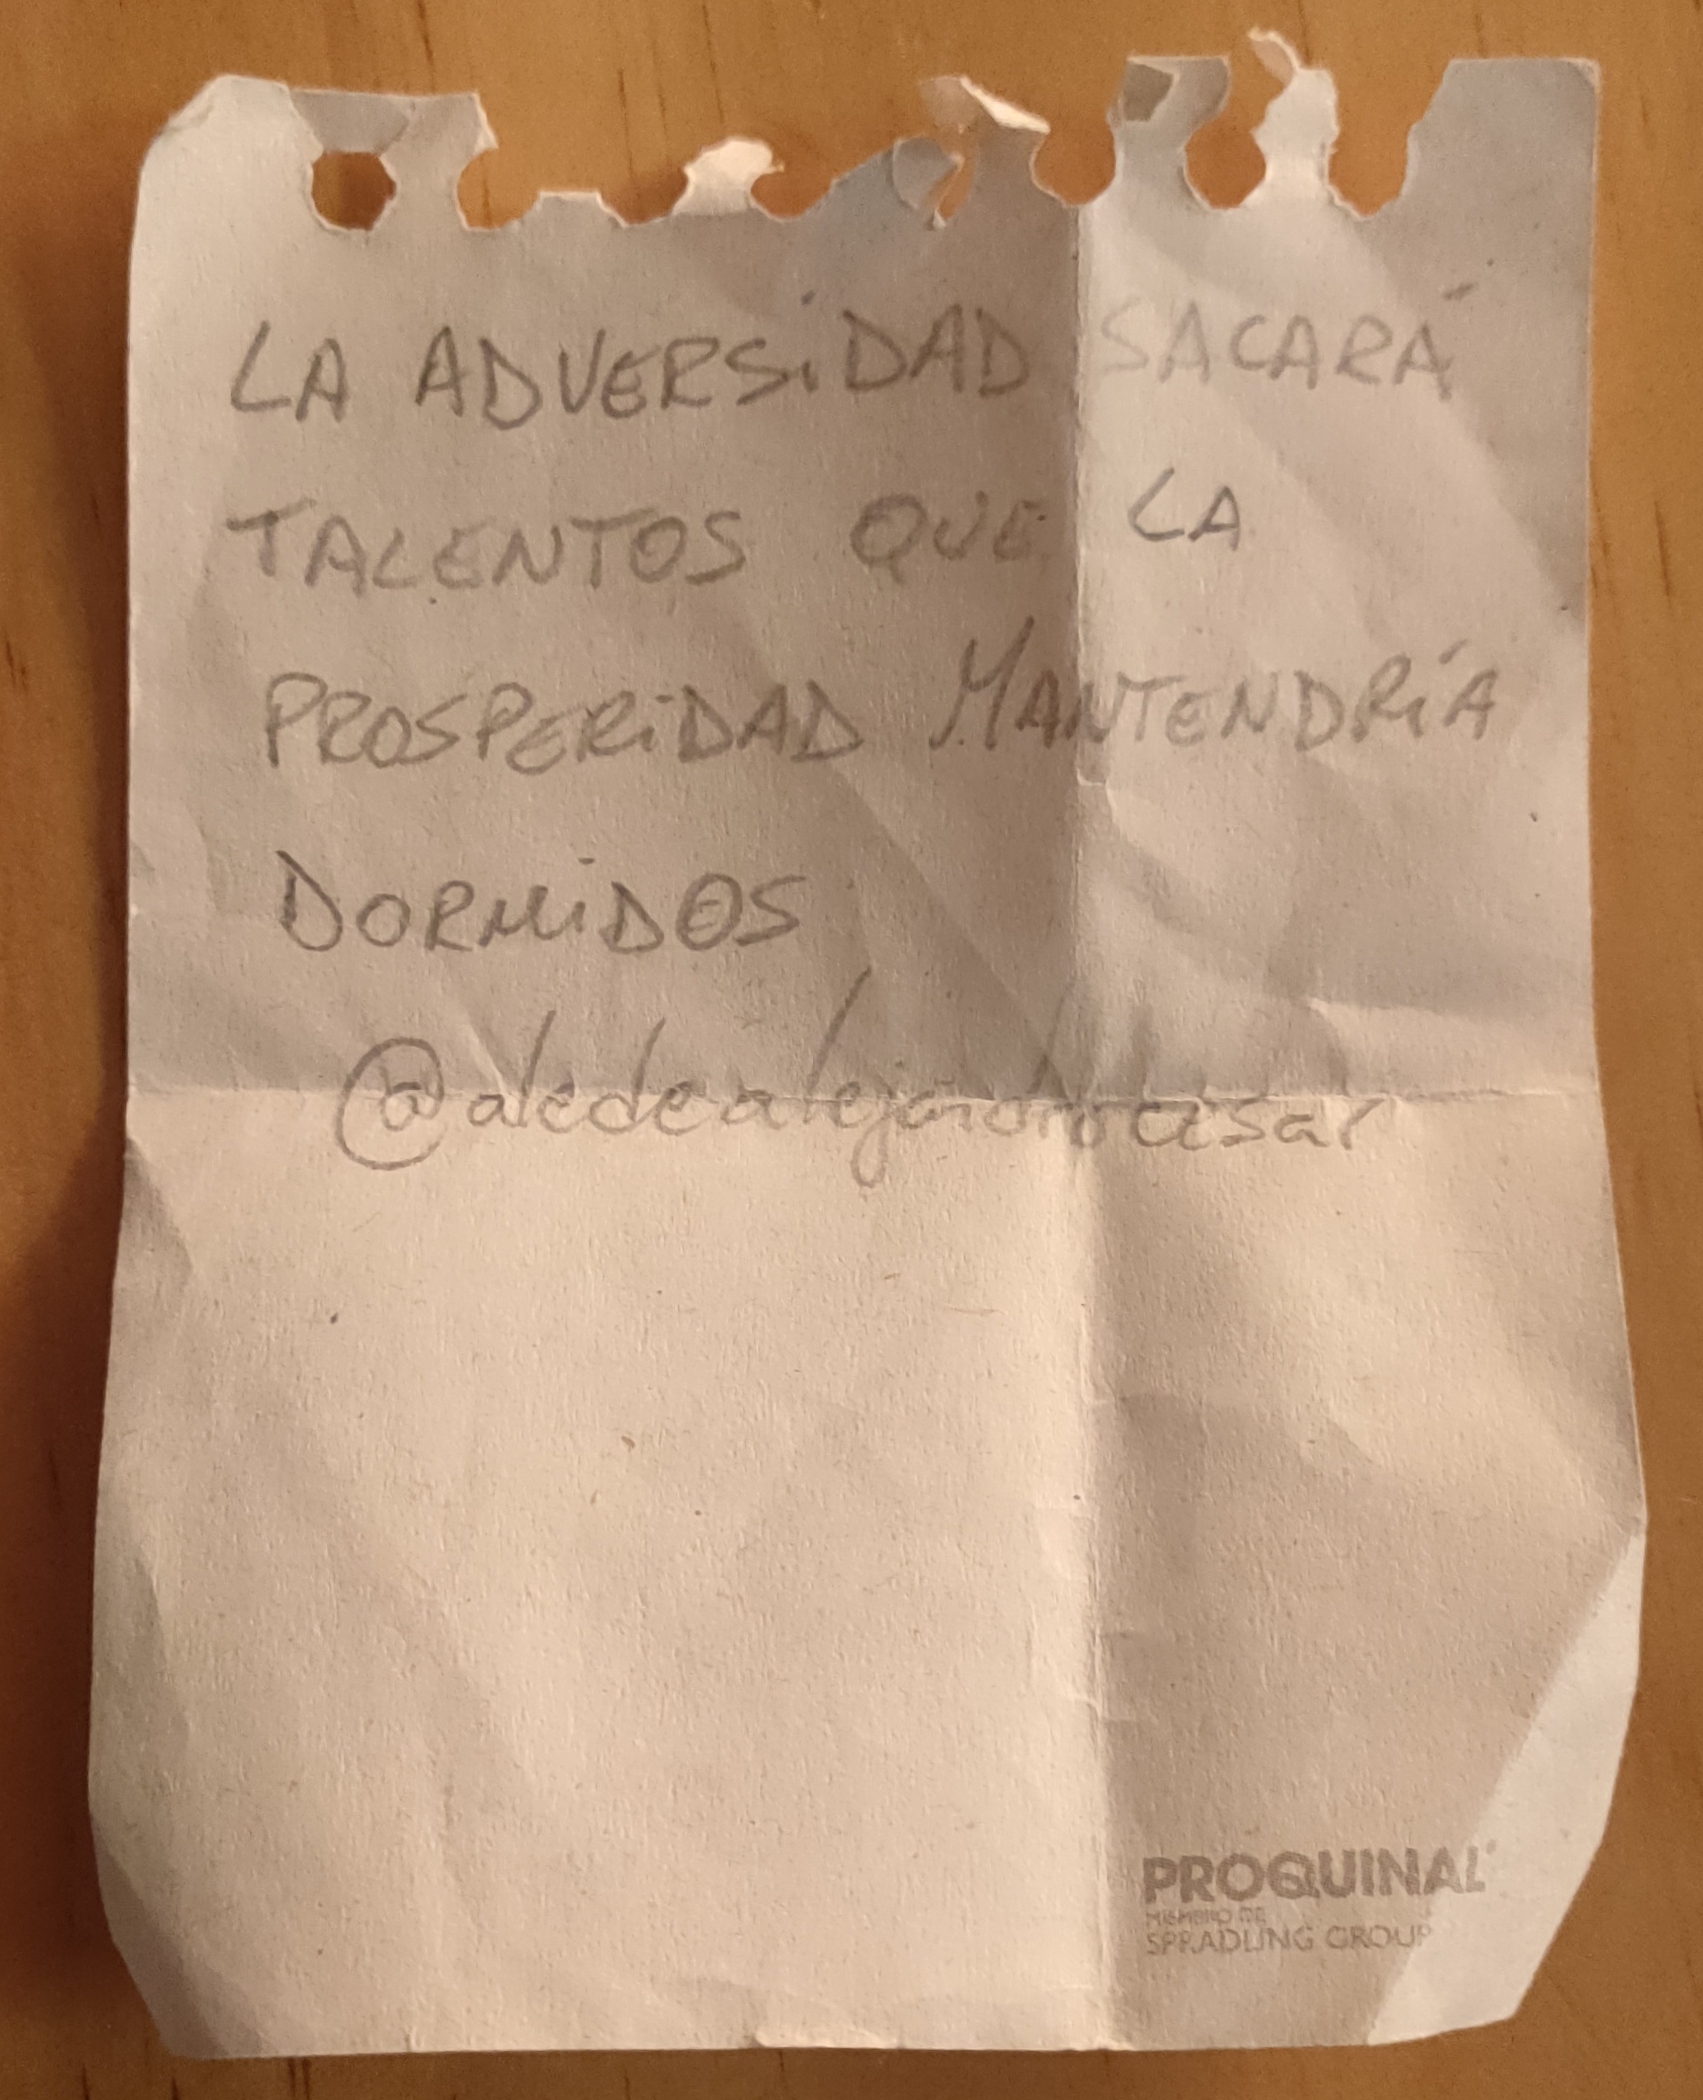 LA ADVERSiDAD SACARÁ
TALENTOS QUE LA
PROSPERiDAD MANTENDRÍA
DORMiDOS
PROQUINAL
MIEMBRO DE
SPRADLING GROUP